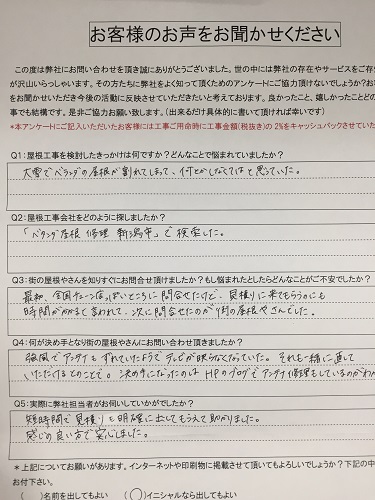 お客様のお声をお聞かせください
この度は弊社にお問い合わせを頂き誠にありがとうございました。世の中には弊社の存在やサービスをご存
が沢山いらっしゃいます。その方たちに弊社をよく知って頂くためのアンケートにご協力頂けないでしょうか?お
をお聞かせいただき今後の活動に反映させていただきたいと考えております。良かったこと、嬉しかったことどの
事でも結構です。是非ご協力お願い致します。(出来るだけ具体的に書いて頂ければ幸いです)
*本アンケートにご記入いただいたお客様には工事ご用命時に工事金額(税抜き)の 2%をキャッシュバックさせてい
Q1:屋根工事を検討したきっかけは何ですか?どんなことで悩まれていましたか?
大雪でベランダの屋根が割れてしまって、何とかしなくてはと思っていた。
Q2:屋根工事会社をどのように探しましたか?
「ベランダ屋根 修理 新潟市」で検索した。
Q3:街の屋根やさんを知りすぐにお問合せ頂けましたか?もし悩まれたとしたらどんなことがご不安でしたか?
最初、全国チェーン店っぽいところに問合せたけど、見積りに来てもらうのにも
時間がかかると言われて、次に問合せたのが街の屋根やさんでした。
Q4:何が決め手となり街の屋根やさんにお問い合わせ頂きましたか?
強風でアンテナもずれていたようでテレビが映らなくなっていた。それも一緒に直して
いただけるとのことで。決め手になったのは HPのブログでアンテナ修理もしているのがわか
Q5:実際に弊社担当者がお伺いしていかがでしたか?
短時間で見積りも明確に出してもらえて助かりました。
感じの良い方で安心しました。
*上記についてお願いがあります。インターネットや印刷物に掲載させて頂いてもよろしいでしょうか?下記の中
お付下さい。
( )名前を出してもよい (○)イニシャルなら出してもよい